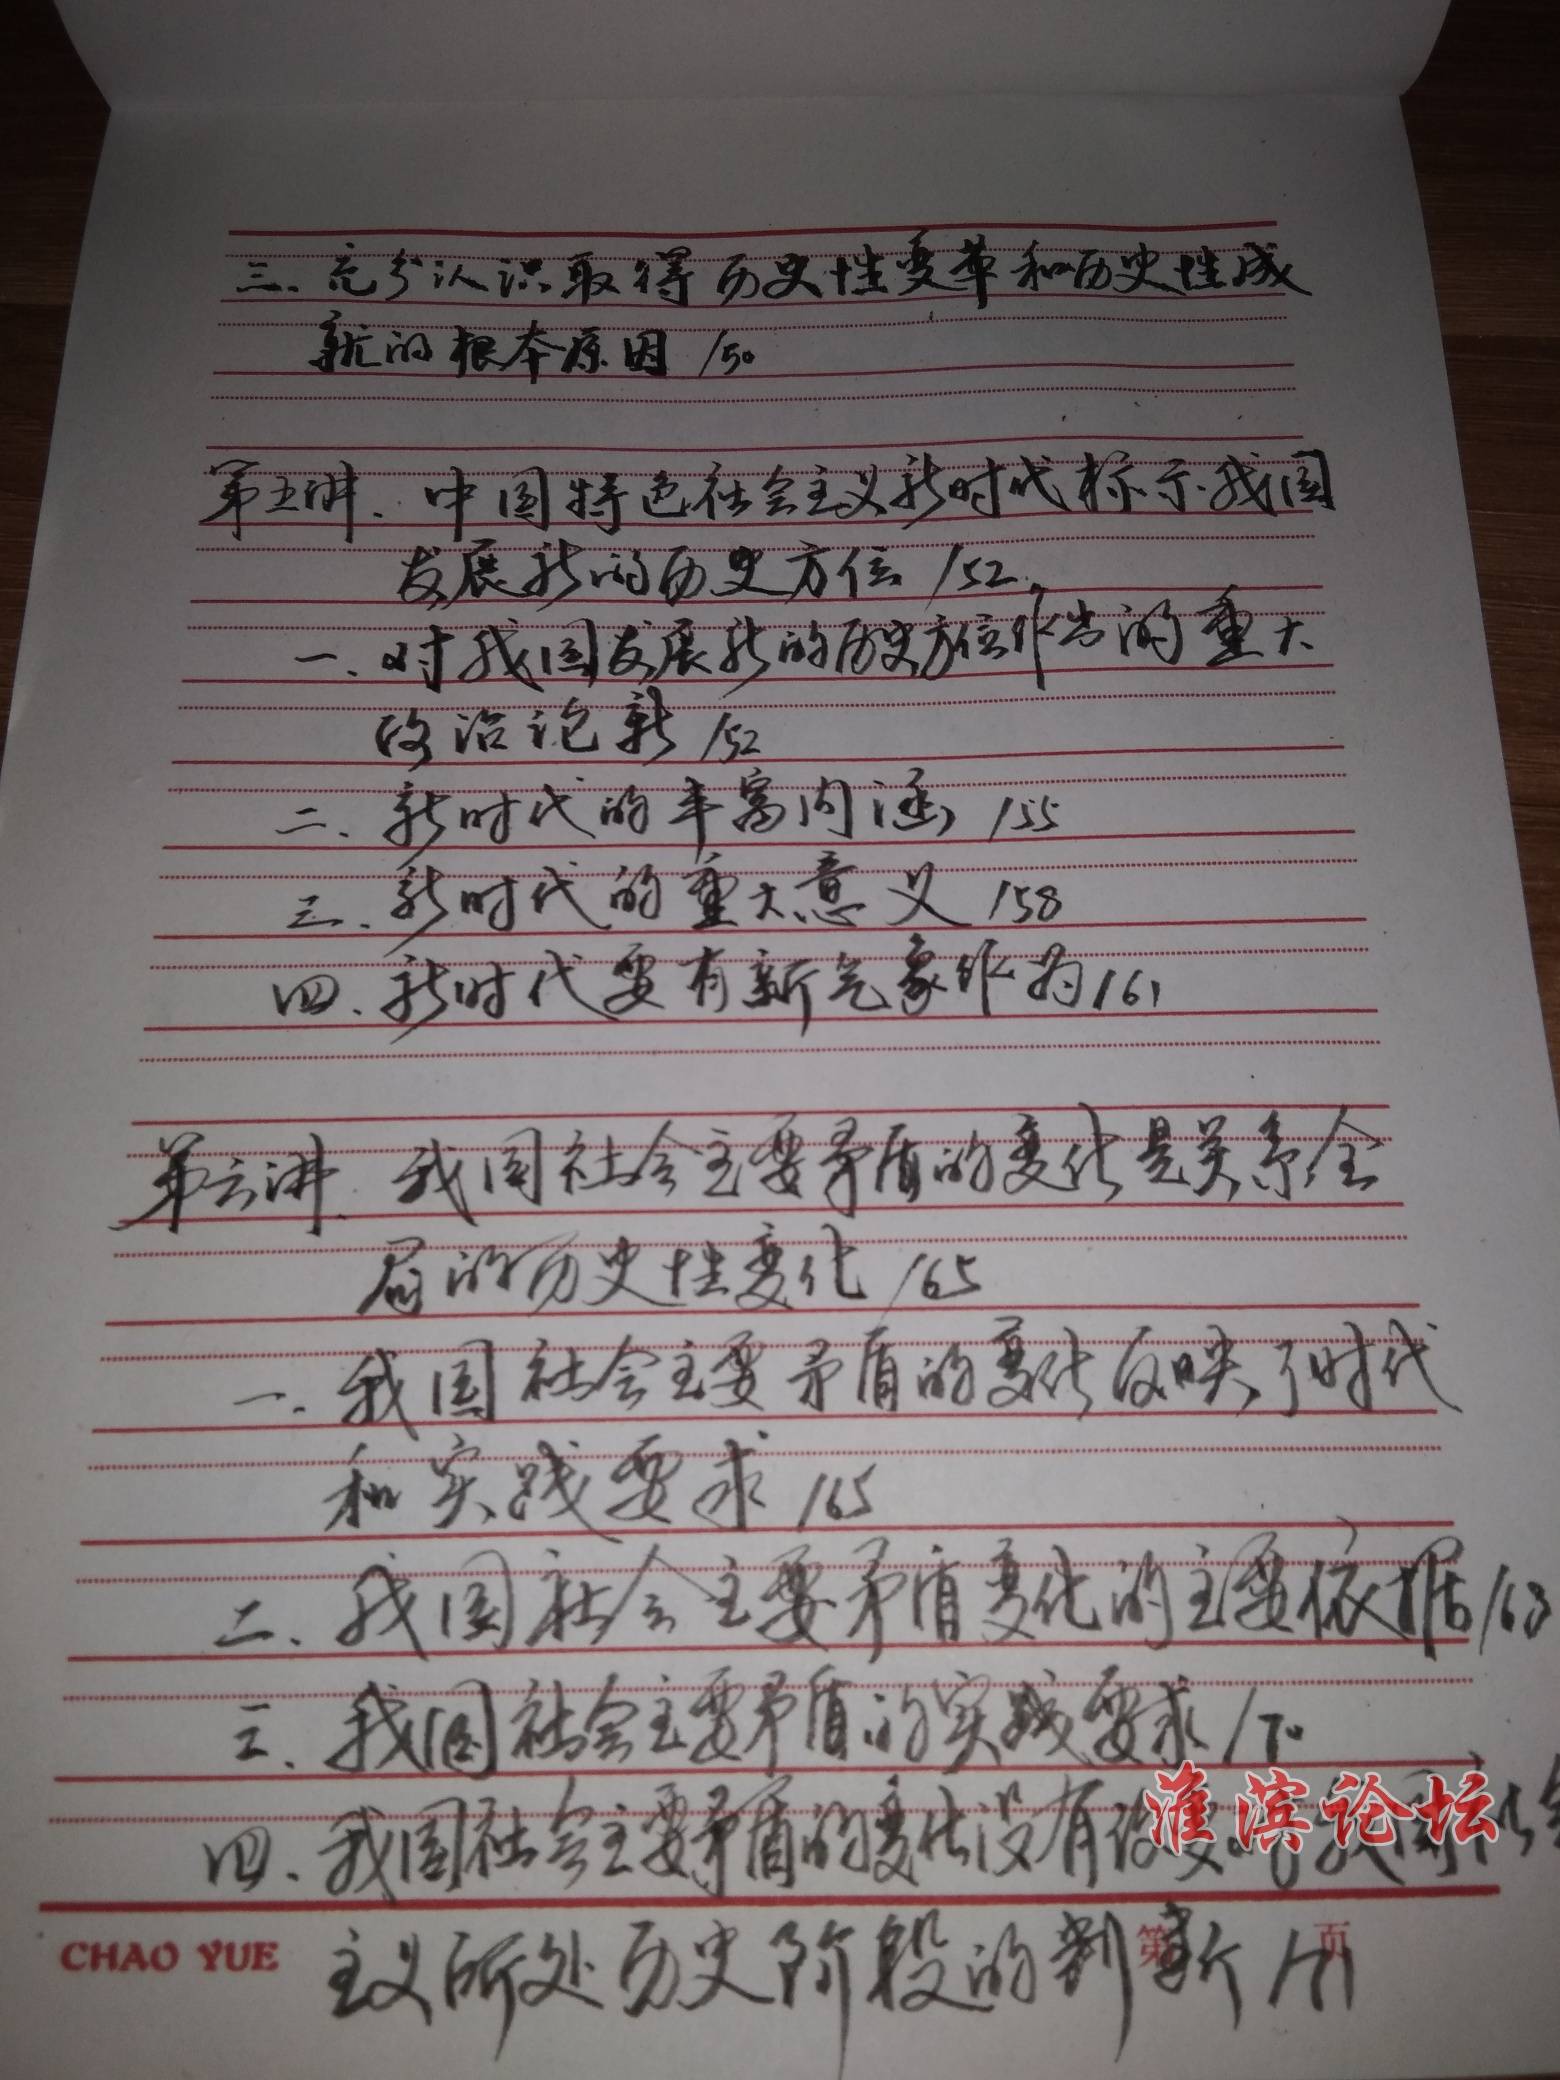 三.充分认识取得历史性变革和历史性成
就的根本原因 150
第五讲.中国特色社会主义新时代标示我国
发展新的历史方位 152.
一.对我国发展新的历史方位作出的重大
政治论断 152
二.新时代的丰富内涵 155
三.新时代的重大意义 158
四.新时代要有新气象作为 161
第六讲.我国社会主要矛盾的变化是关系全
局的历史性变化 165
一.我国社会主要矛盾的变化反映了时代
和实践要求 165
二.我国社会主要矛盾变化的主要依据 168
三.我国社会主要矛盾的实践要求 170
四.我国社会主要矛盾的变化没有改变对我国社会
主义所处历史阶段的判断 171
淮滨论坛
CHAO YUE 第 页